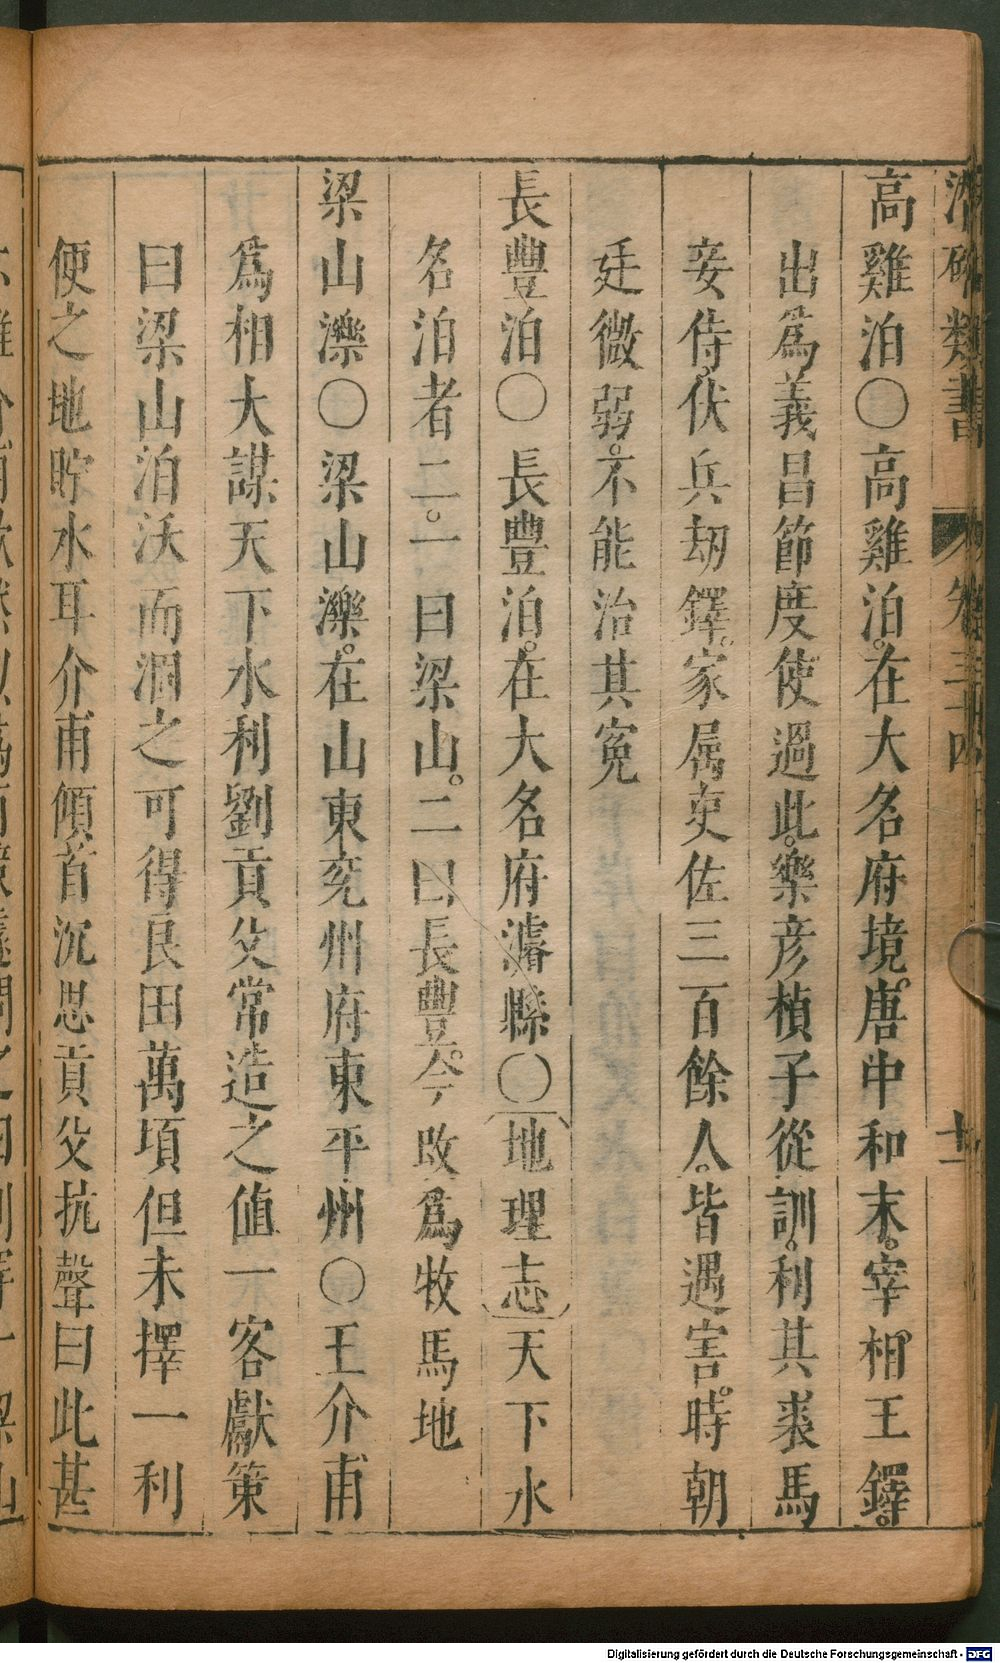 潛確類書 卷三十四 十一
高雞泊〇高雞泊。在大名府境。唐中和末。宰相王鐸。
出爲義昌節度使過此。樂彦楨子從訓。利其裘馬
妾侍。伏兵刼鐸。家屬吏佐三百餘人。皆遇害。時朝
廷微弱。不能治其寃
長豐泊〇長豐泊。在大名府濬縣〇地理志天下水
名泊者二。一曰梁山。二曰長豐。今改爲牧馬地
梁山濼〇梁山濼。在山東兖州府東平州〇王介甫
爲相大謀天下水利劉貢父常造之值一客獻策
曰梁山泊沃而涸之可得良田萬頃但未擇一利
便之地貯水耳介甫傾首沉思貢父抗聲曰此甚
Digitalisierung gefördert durch die Deutsche Forschungsgemeinschaft - DFG